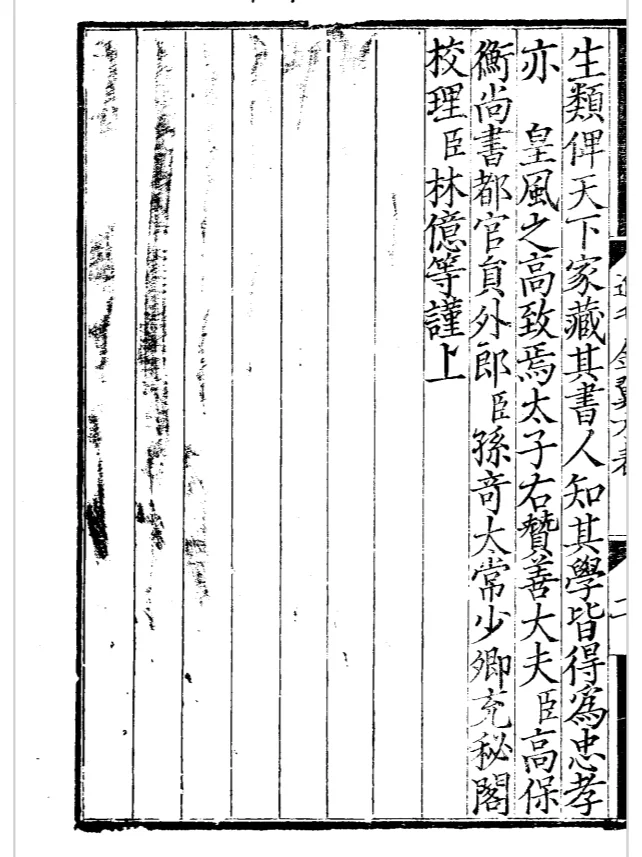 生類俾天下家藏其書人知其學皆得爲忠孝
亦　皇風之高致焉太子右贊善大夫臣高保
衡尚書都官員外郎臣孫竒太常少卿充秘閣
校理臣林億等謹上